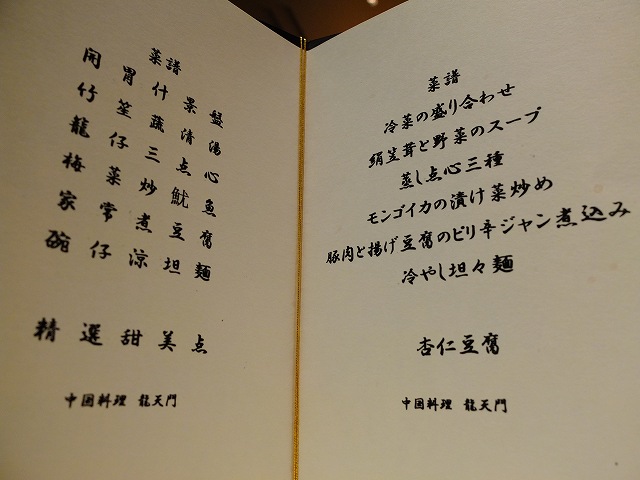 菜譜
開胃什景盤
竹笙蔬清湯
龍仔三点心
梅菜炒魷魚
家常煮豆腐
碗仔涼坦麺
精選甜美点
中国料理 龍天門
菜譜
冷菜の盛り合わせ
絹笠茸と野菜のスープ
蒸し点心三種
モンゴイカの漬け菜炒め
豚肉と揚げ豆腐のピリ辛ジャン煮込み
冷やし坦々麺
杏仁豆腐
中国料理 龍天門